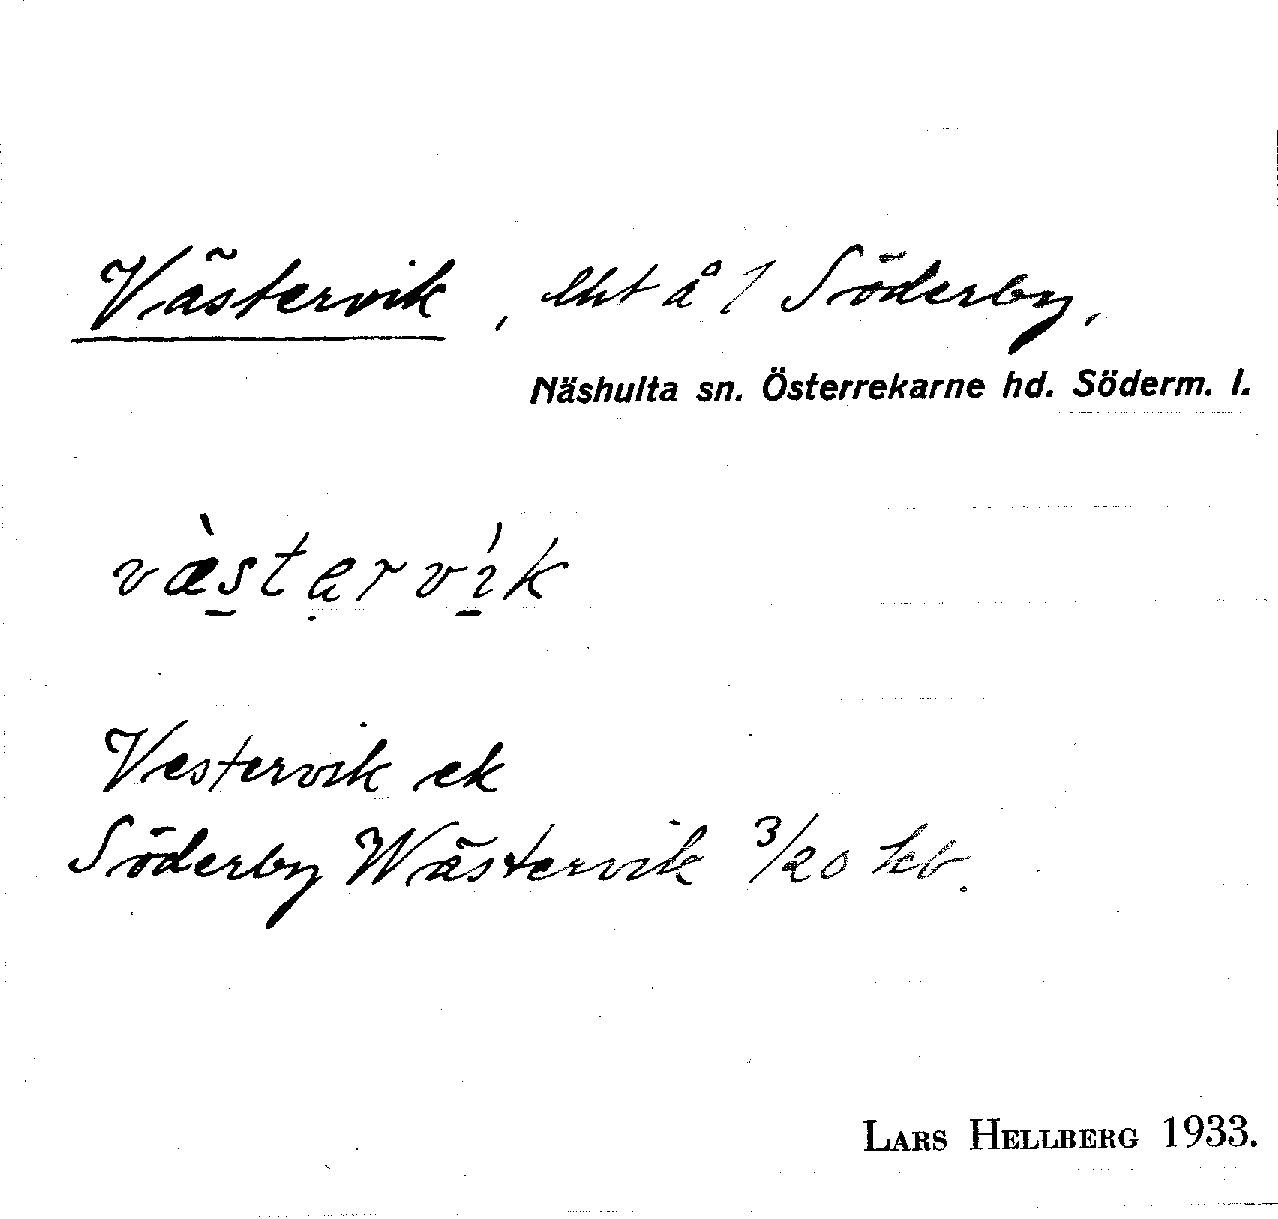 Västervik, lht å 1 Söderby,
Näshulta sn. Österrekarne hd. Söderm. l.
væ̀stərvík
Vestervik ek
Söderby Wästervik 3/20 jb.
LARS HELLBERG 1933.